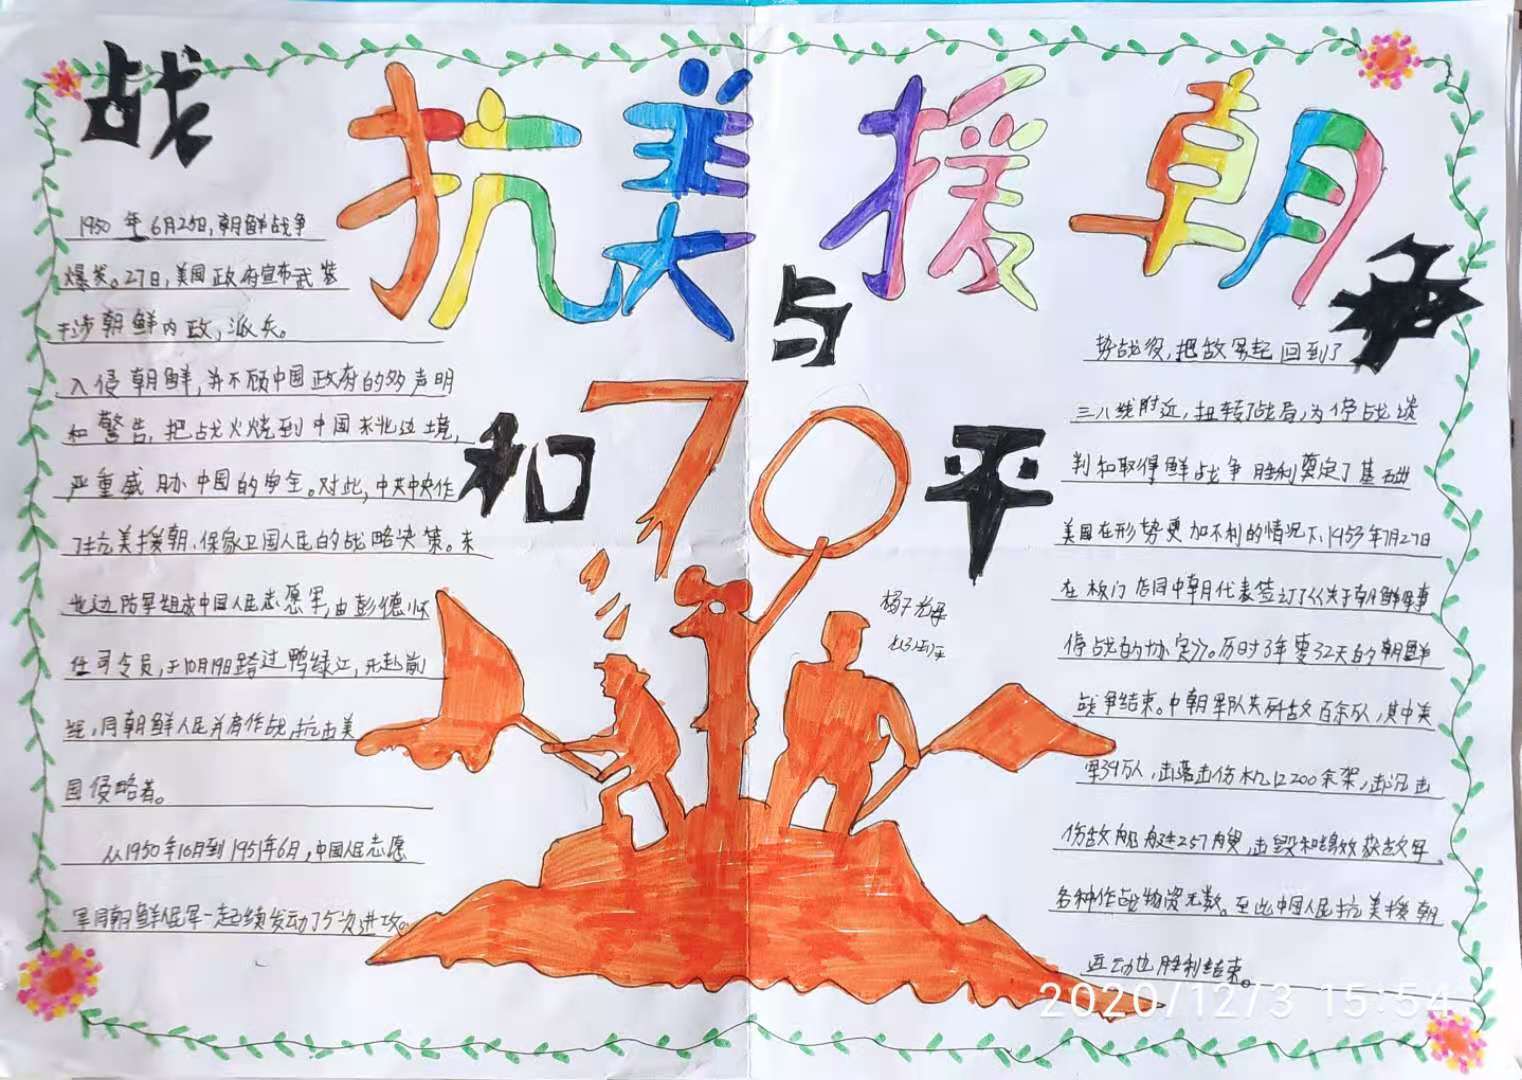 战
抗美援朝
争
与
和70平
1950年6月25日,朝鲜战争
爆发。27日,美国政府宣布武装
干涉朝鲜内政,派兵。
入侵朝鲜,并不顾中国政府的多声明
和警告,把战火烧到中国东北边境,
严重威胁中国的安全。对此,中共中央作
了抗美援朝、保家卫国人民的战略决策。东
北边防军组成中国人民志愿军,由彭德怀
任司令员,于10月19日跨过鸭绿江,开赴前
线,同朝鲜人民并肩作战,抗击美
国侵略者。
从1950年10月到1951年6月,中国人民志愿
军同朝鲜人民军一起续发动了5次进攻。
势战役,把敌军起回到了
三八线附近,扭转了战局,为停战谈
判和取得鲜战争胜利奠定了基础
美国在形势更加不利的情况下、1953年7月27日
在板门店同中朝代表签订了《关于朝鲜军事
停战的协定》。历时3年零32天的朝鲜
战争结束。中朝军队共歼敌百余队,其中美
军39万人,击落击伤机12200余架,击沉击
伤敌船舰257艘,击毁和缴获敌军
各种作战物资无数。至此中国人民抗美援朝
运动也胜利结束。
2020/12/3 15:54